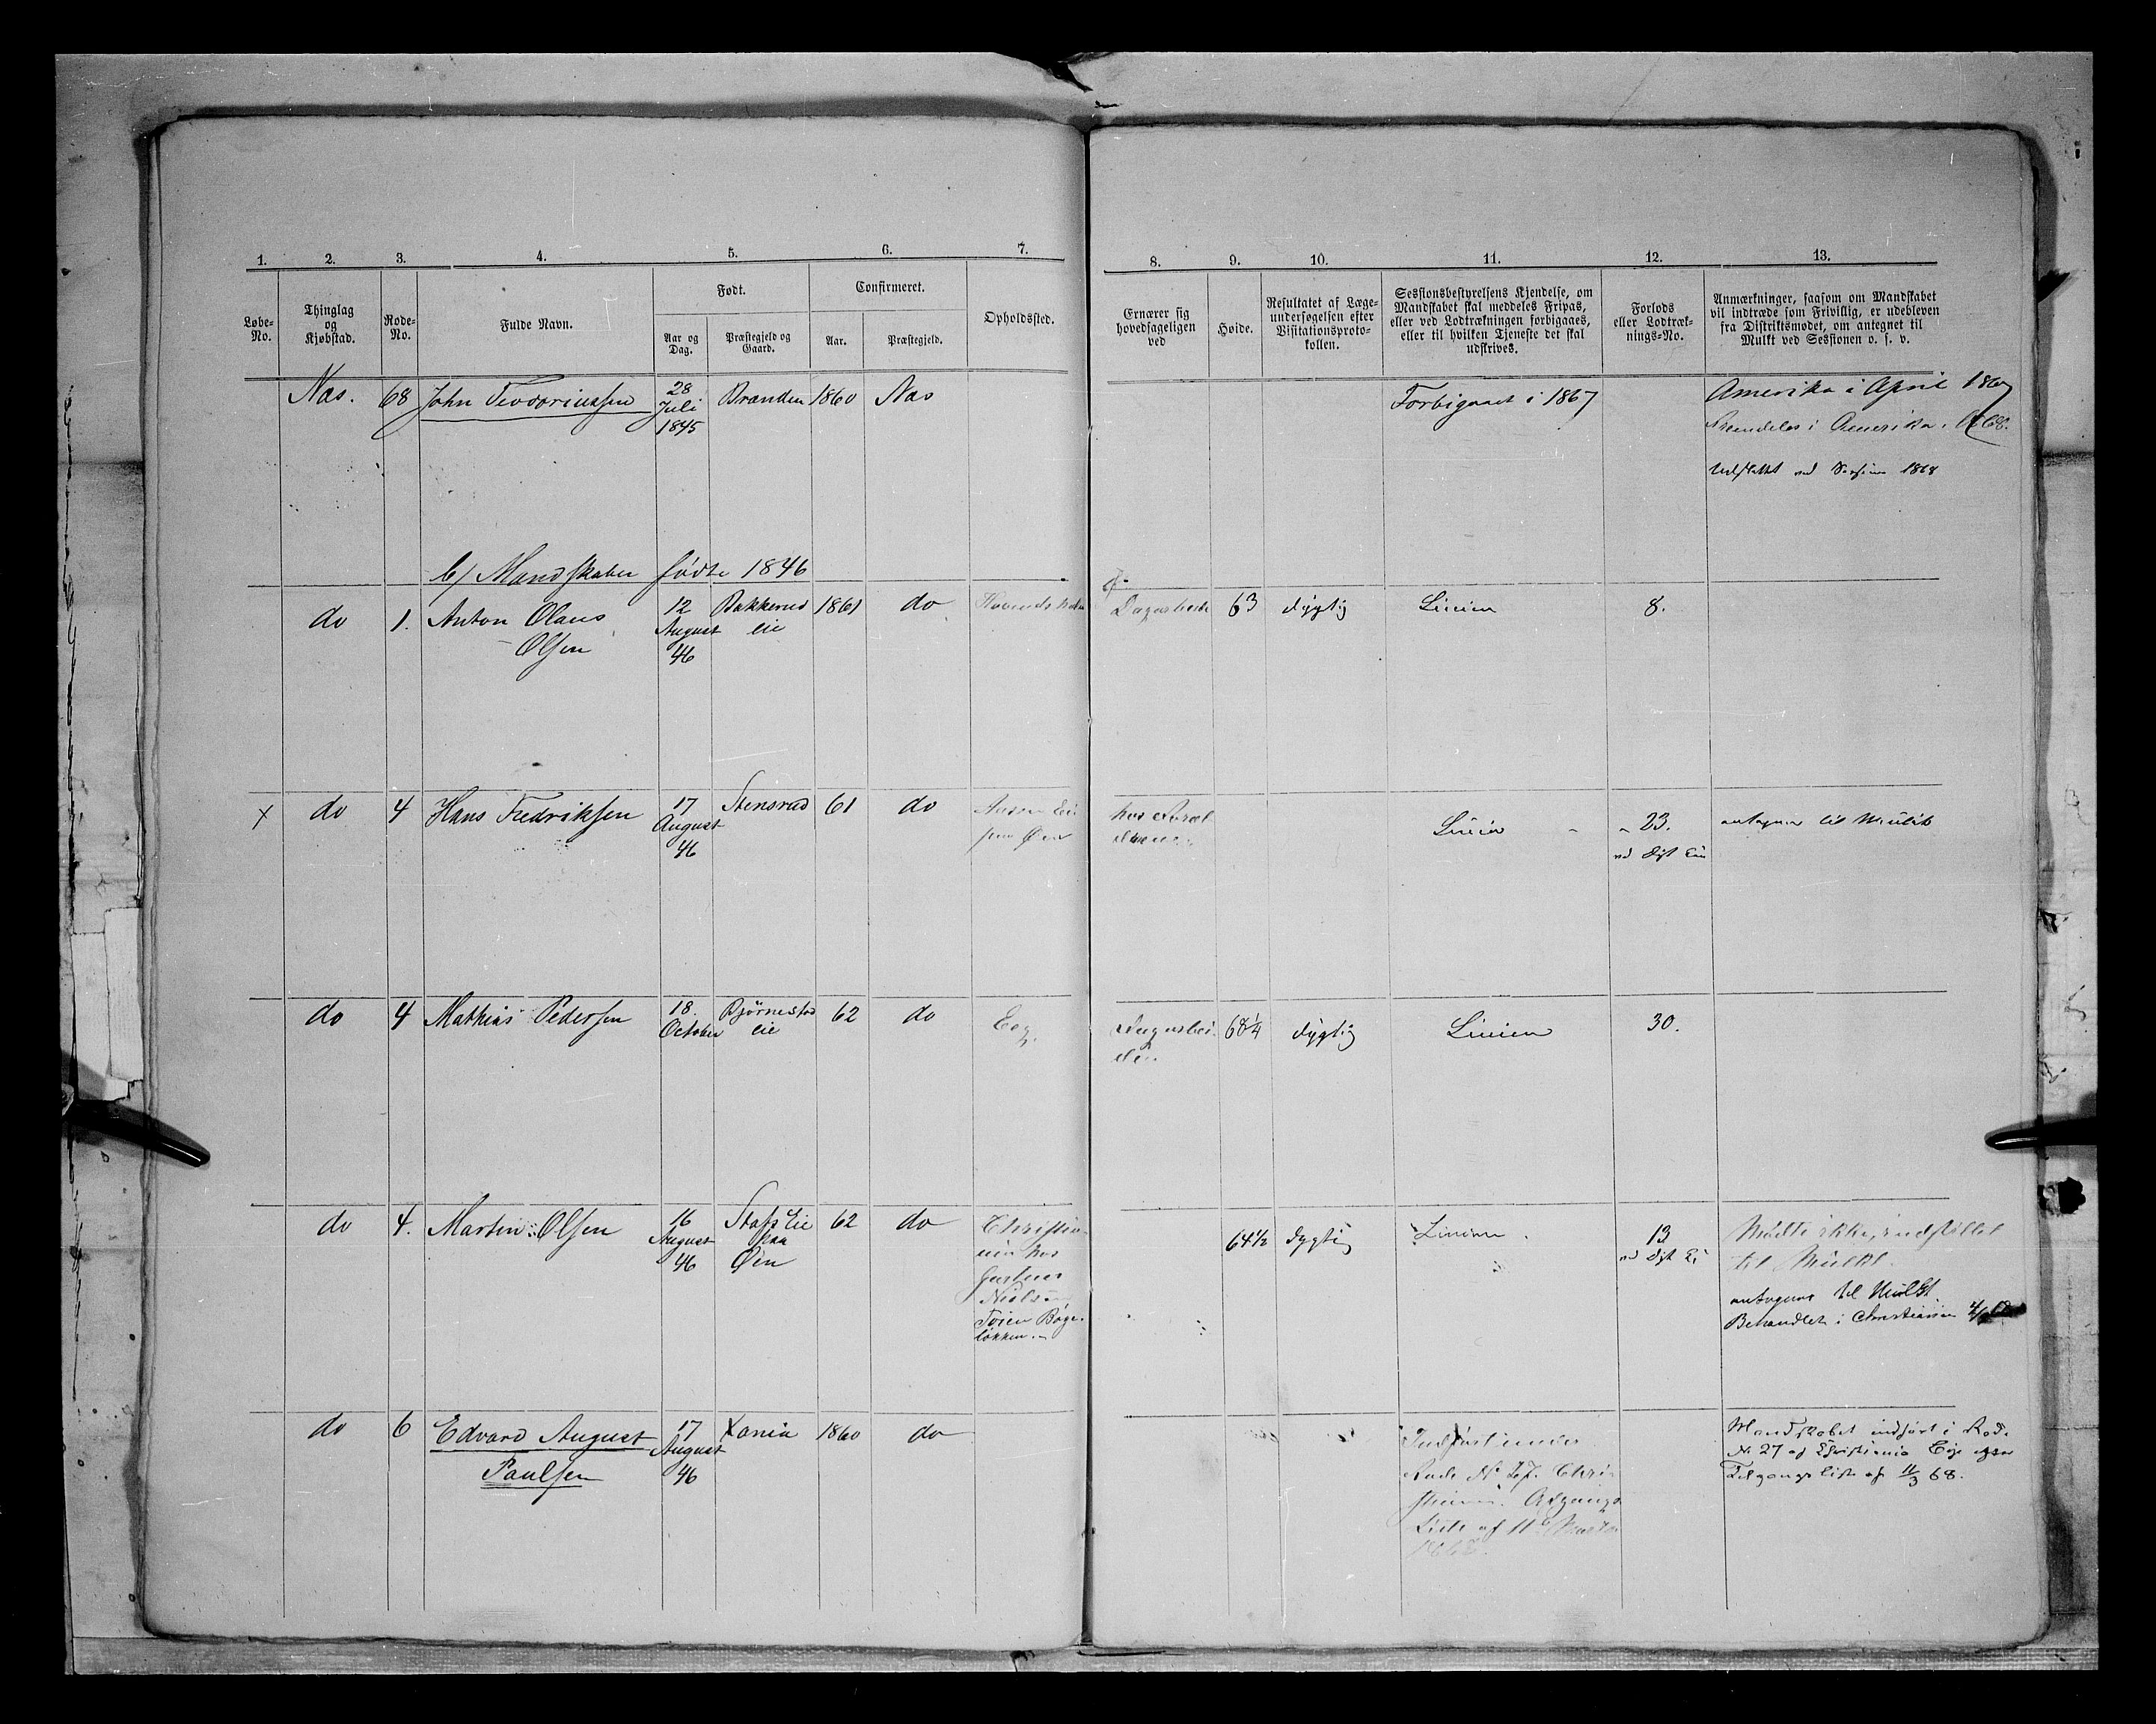 1. 2. 3. 4. 5. 6. 7. 8. 9. 10. 11. 12. 13.
Løbe-
No.
Thinglag
og
Kjøbstad.
Rode-
No.
Fulde Navn.
Født.
Aar og
Dag.
Præstegjeld og
Gaard.
Confirmeret.
Aar.
Præstegjeld.
Opholdssted.
Ernærer sig
hovedsageligen
ved
Høide.
Resultatet af Læge-
undersøgelsen efter
Visitationsproto-
kollen.
Sessionsbestyrelsens Kjendelse, om
Mandskabet skal meddeles Fripas,
eller ved Lodtrækningen forbigaaes,
eller til hvilken Tjeneste det skal
udskrives.
Forlods
eller Lodtræk-
nings-No.
Anmærkninger, saasom om Mandskabet
vil indtræde som Frivillig, er udebleven
fra Distriktsmødet, om antegnet til
Mulkt ved Sessionen o. s. v.
Næs. 68 John Teodoriussen 28 Juli 1845 Branden 1860 Næs
Forbigaaet i 1867
Amerika i April 1867
Fremdeles i Amerika. 1868.
Udslettet ved Session 1868
b/ Mandskaber fødte 1846
do 1. Anton Olaus
Olsen
12
August
46
Bakkerud
eie
1861 do
63 dygtig Linien 8.
x do 4 Hans Fredriksen
17
August
46
Stensrud 61 do
paa Øen
hos Foræl
drene
Linien 23.
antegnes til Mulkt
do 4 Mathias Pedersen
18.
October
Bjørnestad
eie
62 do
Eeg.
68¼ dygtig Linien 30.
do 4. Martin Olsen
16
August
46
Stafs Eie
paa
Øen
62 do
Christia-
nia hos
Nielsen
Tøien Bøge-
løkken
64½ dygtig Linien. 13
Mødte ikke, indstillet
til Mulkt.
antegnes til Mulkt.
Behandlet i Christiania
do 6 Edvard August
Paulsen
17
August
46
Xania 1860 do
Indført under
Rode No 27. Chri-
stiania. Afgangs
Liste af 11te Marts
1868.
Mandskabet indført i Rode
No 27 af Christiania
Tilgangsliste af 11/3 68.